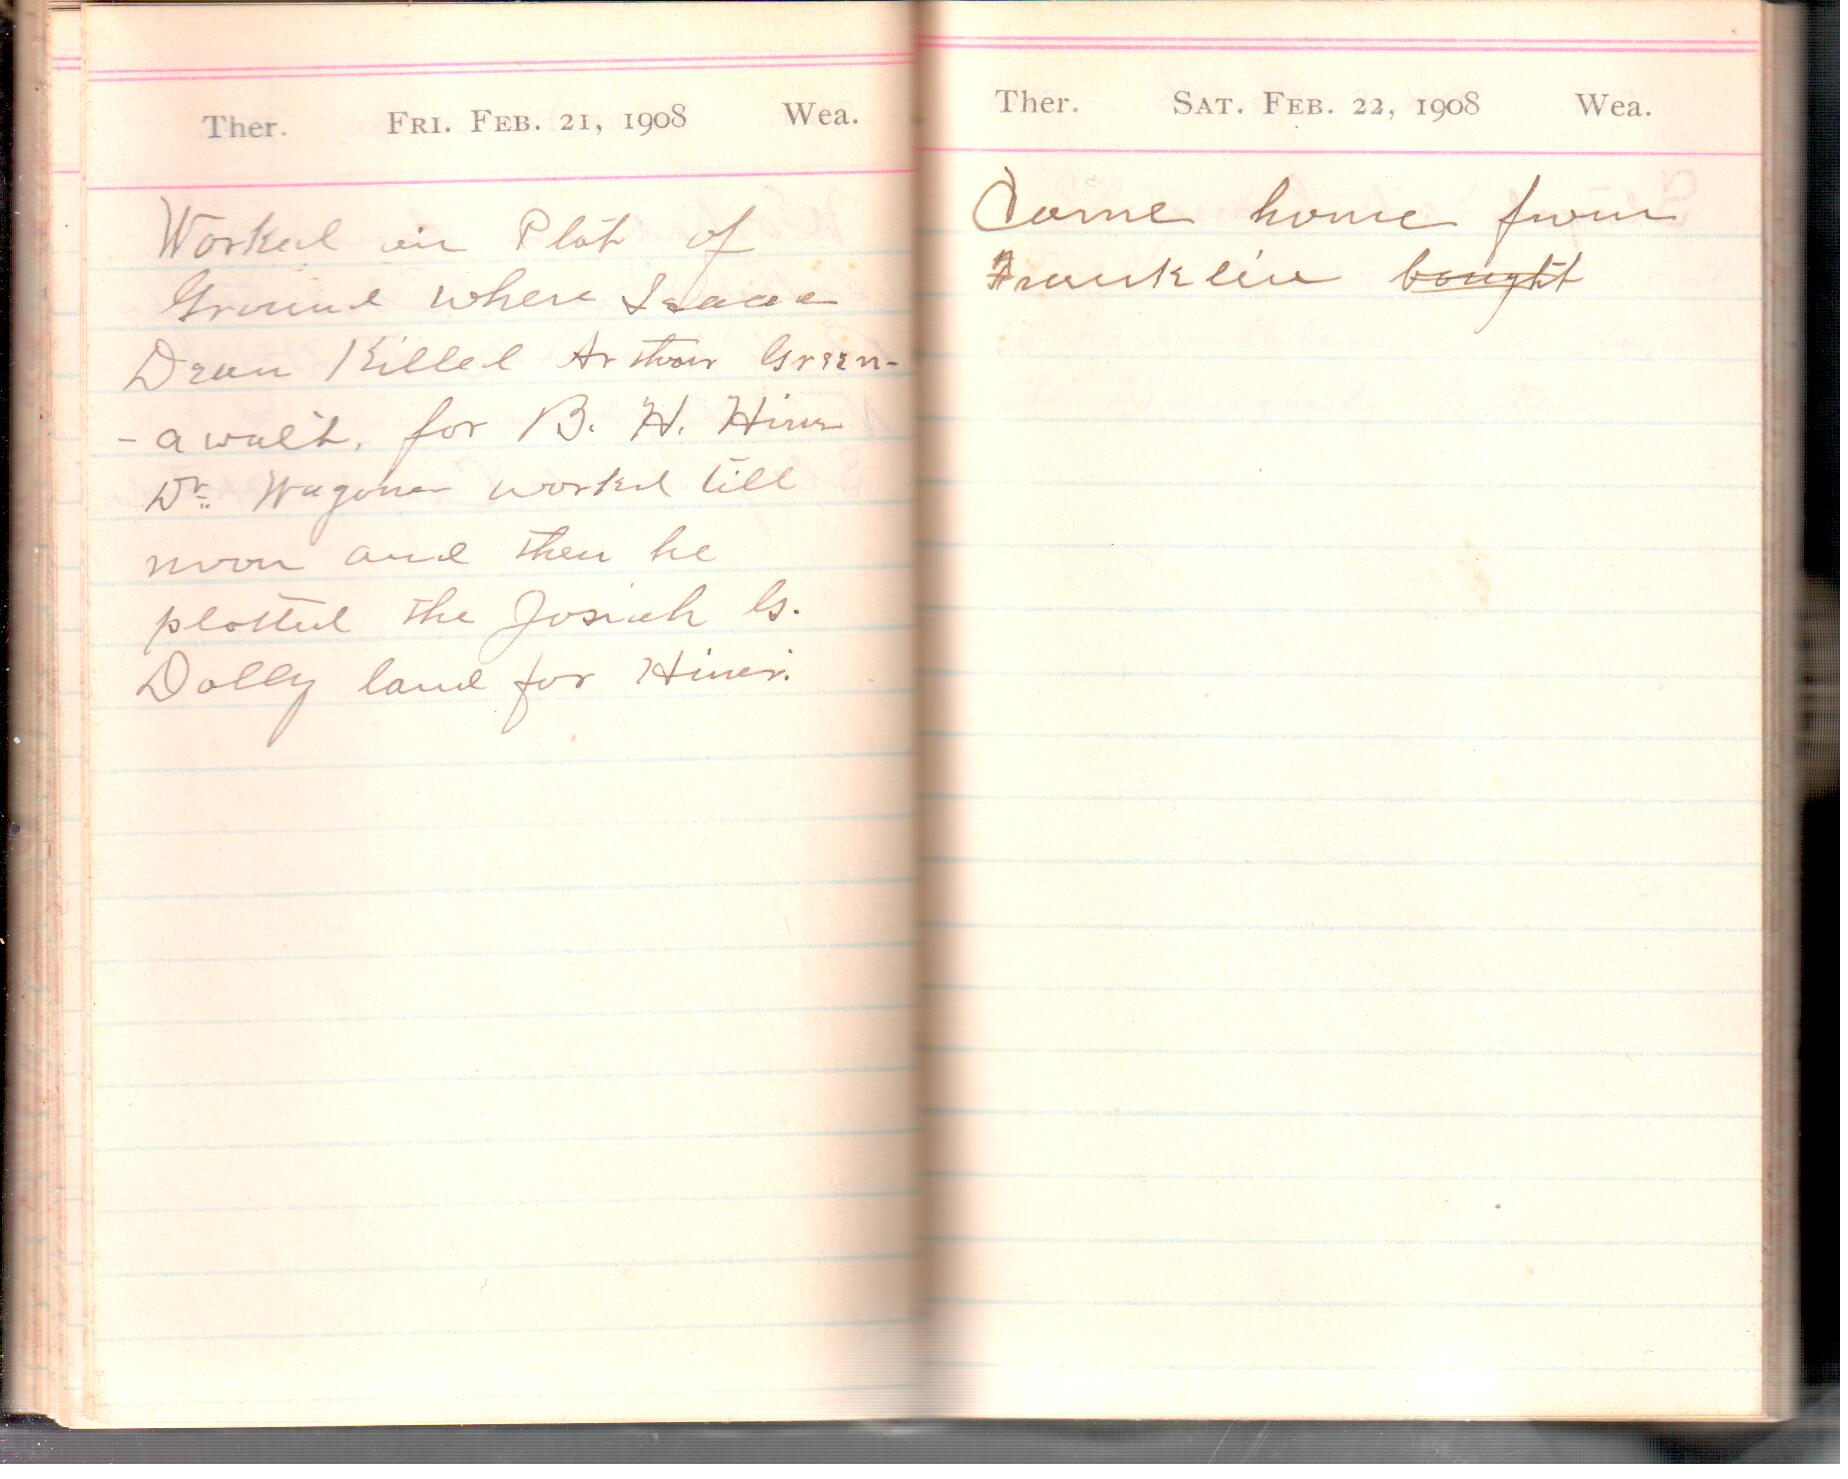 Ther. FRI. FEB. 21, 1908 Wea.
Worked on Plat of
Ground where Isaac
Dean Killed Arthur Green-
-awalt, for B. H. Hiner
Dr. Wagoner worked till
noon and then he
plotted the Josiah G.
Dolly land for Hiner.
Ther. SAT. FEB. 22, 1908 Wea.
Came home from
Franklin bought